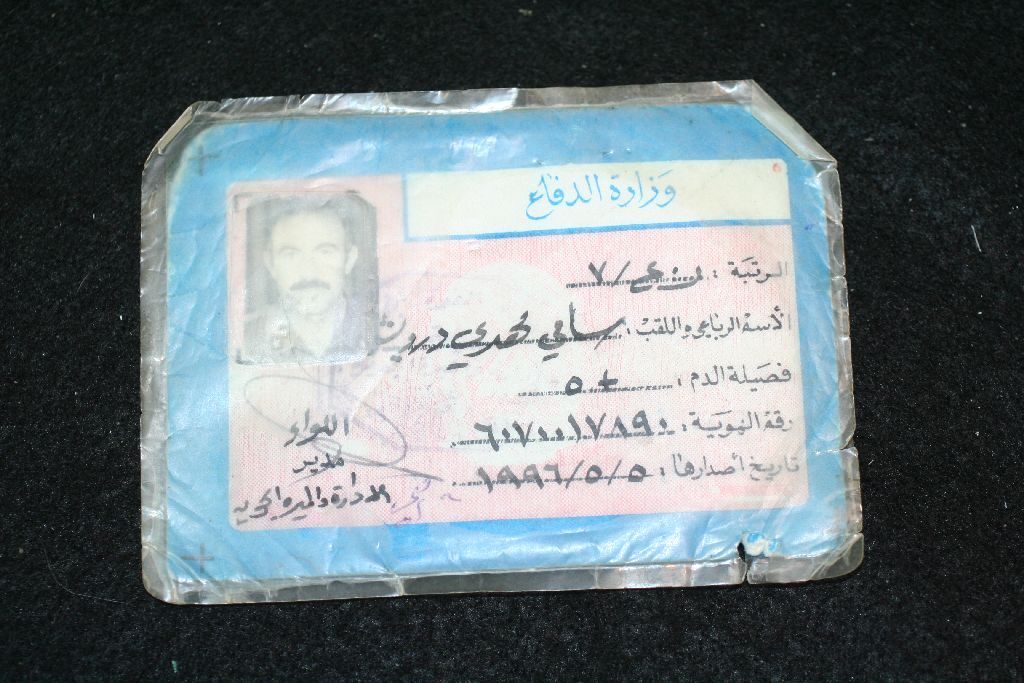 وزارة الدفاع
الرتبة : ن.ع/٧
الأسم الرباعي واللقب : سامي مهدي درويش
فصيلة الدم : + ٥
رقم الهوية :
تاريخ أصدارها : ١٩٩٦/٥/٥
اللواء
مدير
الادارة والميرة